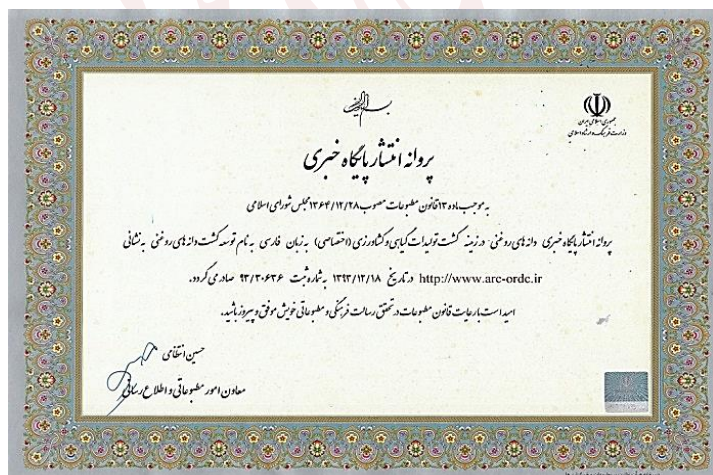 بسم الله الرحمن الرحیم
جمهوری اسلامی ایران
وزارت فرهنگ و ارشاد اسلامی
پروانه انتشار پایگاه خبری
به موجب ماده ۱۳ قانون مطبوعات مصوب ۱۳۶۴/۱۲/۲۸ مجلس شورای اسلامی
پروانه انتشار پایگاه خبری دانه های روغنی در زمینه کشت تولیدات گیاهی و کشاورزی (اختصاصی) به زبان فارسی به نام توسعه کشت دانه های روغنی به نشانی
http://www.arc-ordc.ir در تاریخ ۱۳۹۳/۱۲/۱۸ به شماره ثبت ۹۳/۳۰۶۳۶ صادر می گردد.
امید است با رعایت قانون مطبوعات در تحقق رسالت فرهنگی و مطبوعاتی خویش موفق و پیروز باشید.
حسین انتظامی
معاون امور مطبوعاتی و اطلاع رسانی